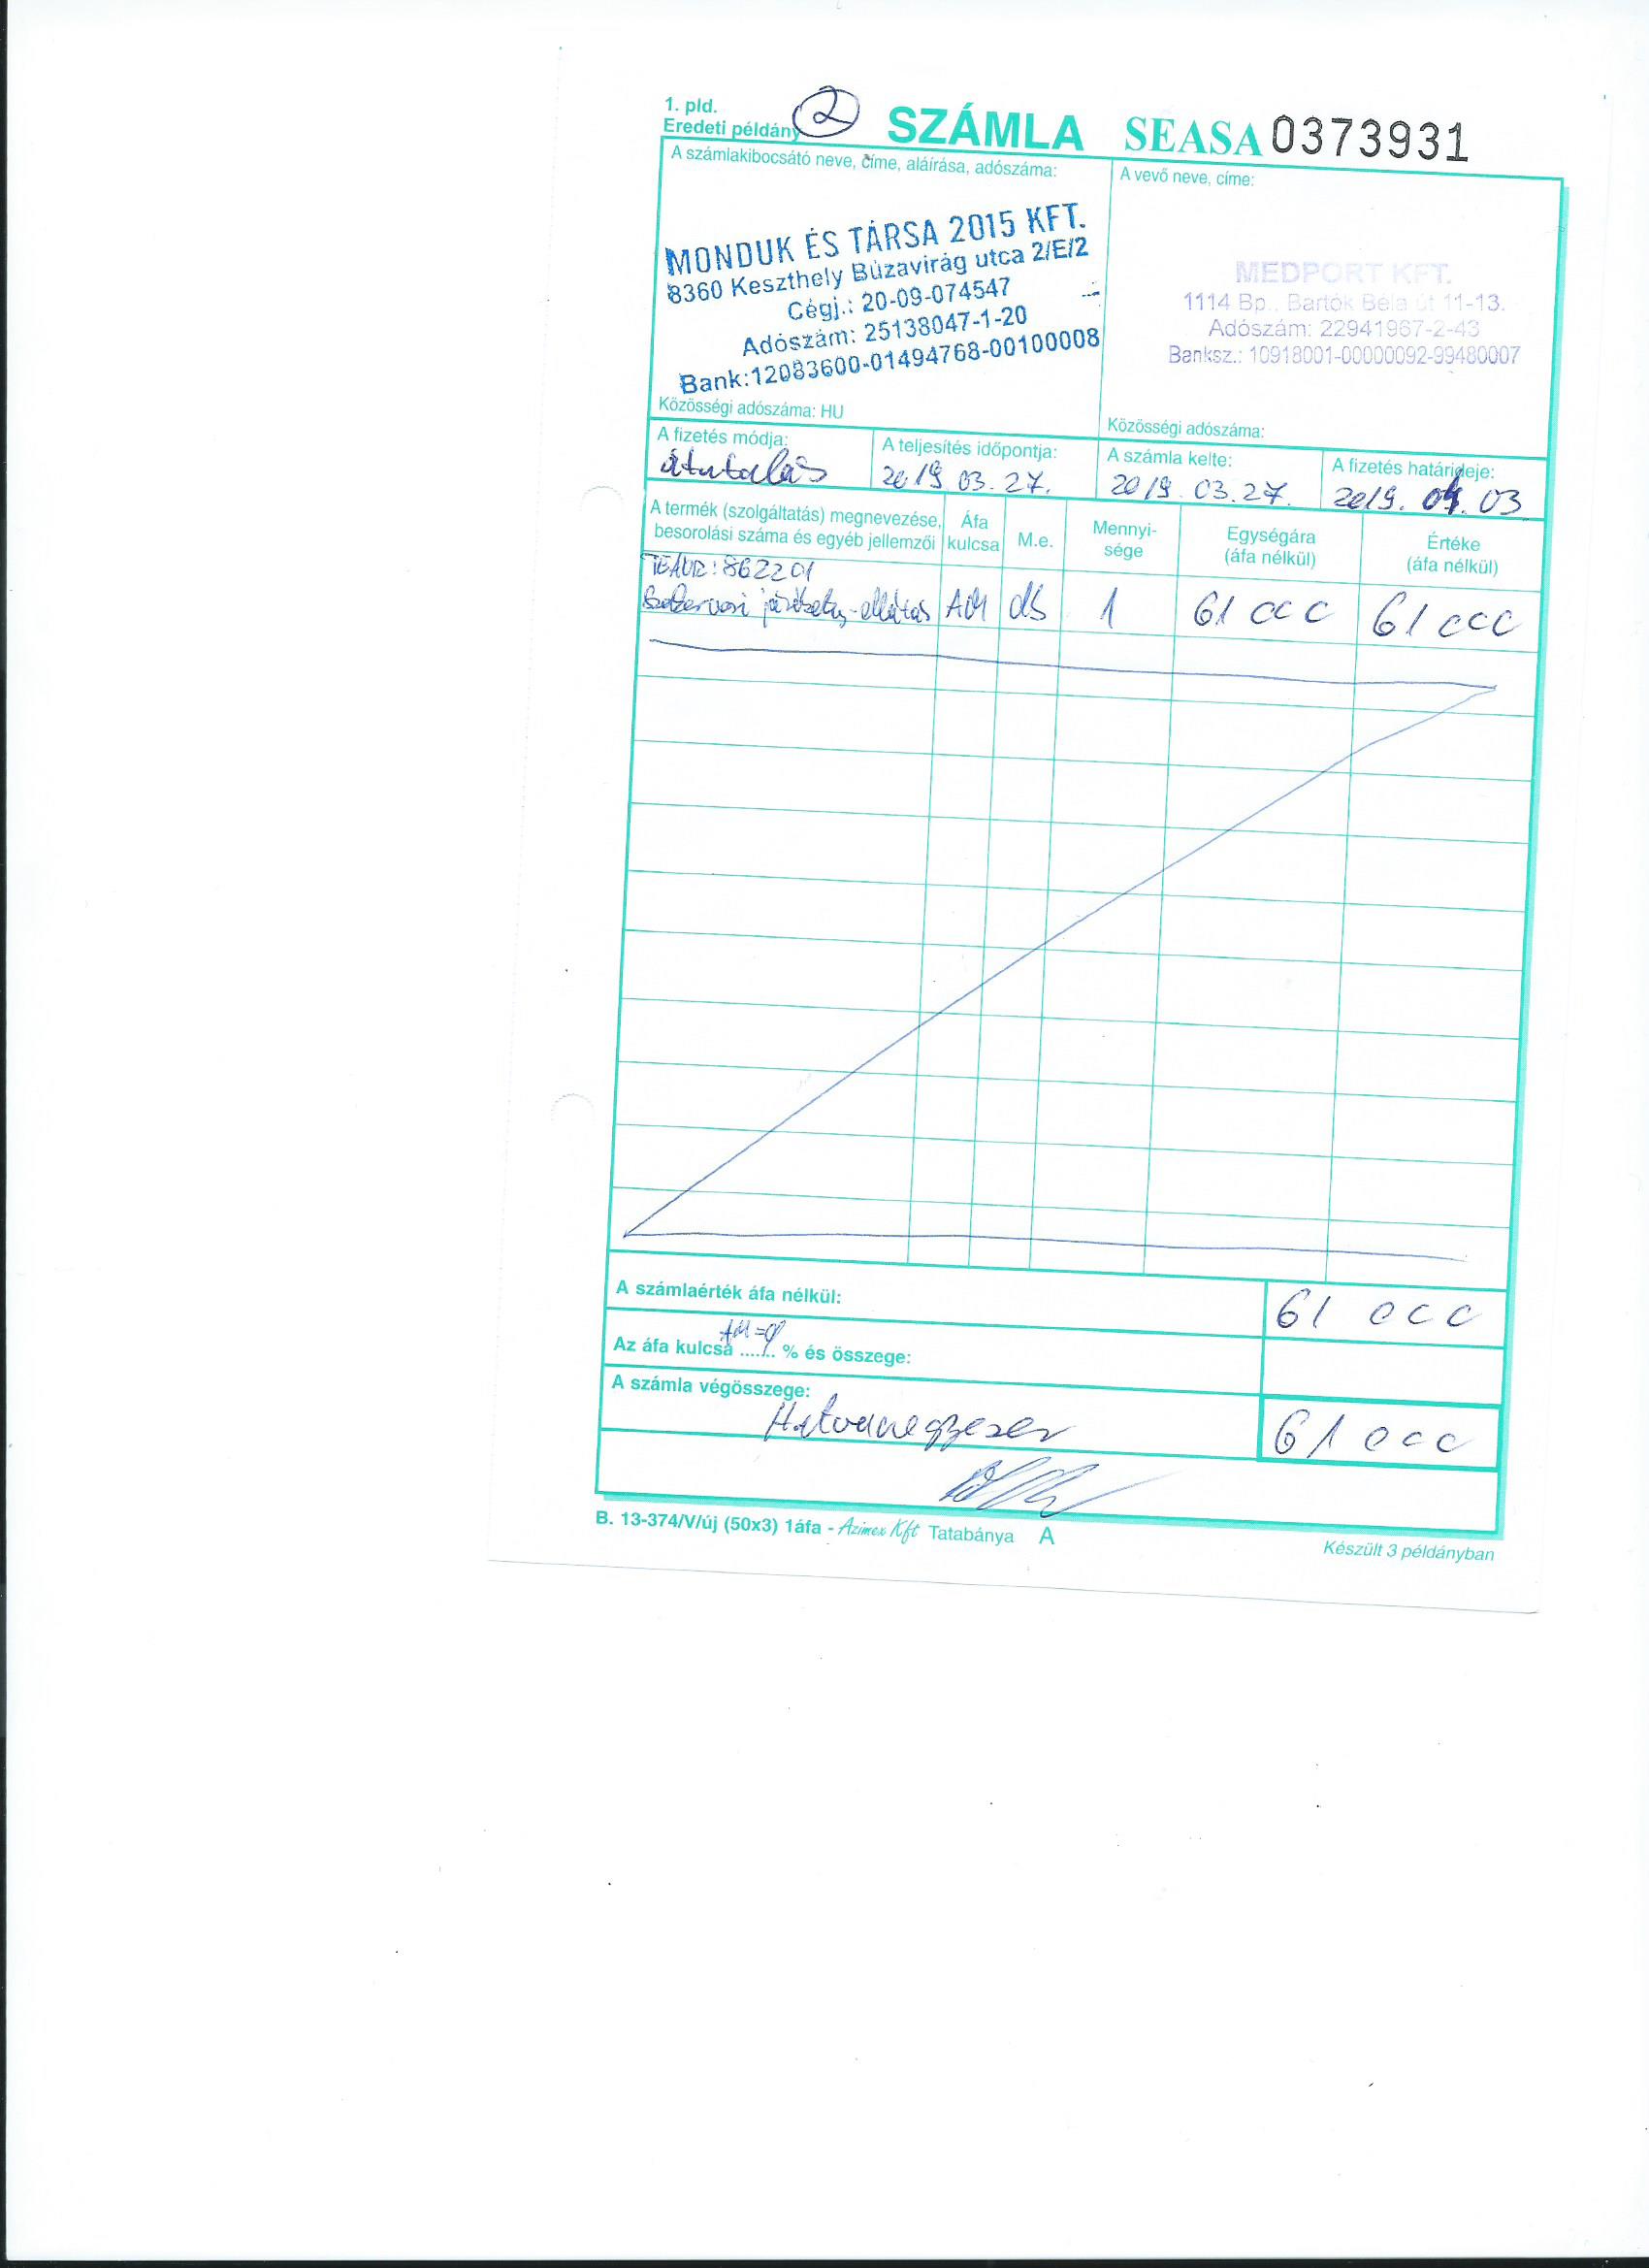 1. pld.
Eredeti példány 2 SZÁMLA SEASA 0373931
A számlakibocsátó neve, címe, aláírása, adószáma:
MONDUK ÉS TÁRSA 2015 KFT.
8360 Keszthely Búzavirág utca 2/E/2
Cégj.: 20-09-074547
Adószám: 25138047-1-20
Bank:12083600-01494768-00100008
Közösségi adószáma: HU
A vevő neve, címe:
MEDPORT KFT.
1114 Bp., Bartók Béla út 11-13.
Adószám: 22941967-2-43
Banksz.: 10918001-00000092-99480007
Közösségi adószáma:
A fizetés módja:
átutalás
A teljesítés időpontja:
2019 03. 27.
A számla kelte:
2019. 03. 27.
A fizetés határideje:
2019. 04. 03
A termék (szolgáltatás) megnevezése, besorolási száma és egyéb jellemzői
Áfa kulcsa
M.e.
Mennyi-
sége
Egységára
(áfa nélkül)
Értéke
(áfa nélkül)
TEÁOR: 862201
Szakorvosi járóbeteg-ellátás AM db 1 61 000 61 000
A számlaérték áfa nélkül: 61 000
AM=0
Az áfa kulcsa ....... % és összege:
A számla végösszege:
Hatvanegyezer 61 000
B. 13-374/V/új (50x3) 1áfa - Azimex Kft Tatabánya A
Készült 3 példányban